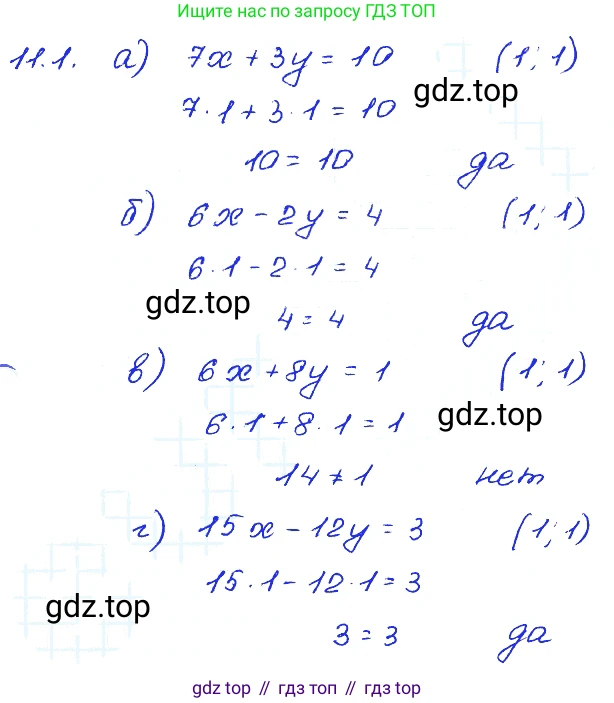 Ищите нас по запросу ГДЗ ТОП
11.1. а) 7x + 3y = 10 (1; 1)
gdz.top
7·1 + 3·1 = 10
10 = 10 да
б) 6x - 2y = 4 (1; 1)
6·1 - 2·1 = 4
gdz.top
4 = 4 да
в) 6x + 8y = 1 (1; 1)
6·1 + 8·1 = 1
gdz.top
14 ≠ 1 нет
г) 15x - 12y = 3 (1; 1)
15·1 - 12·1 = 3
gdz.top
3 = 3 да
gdz top // гдз топ // гдз.top